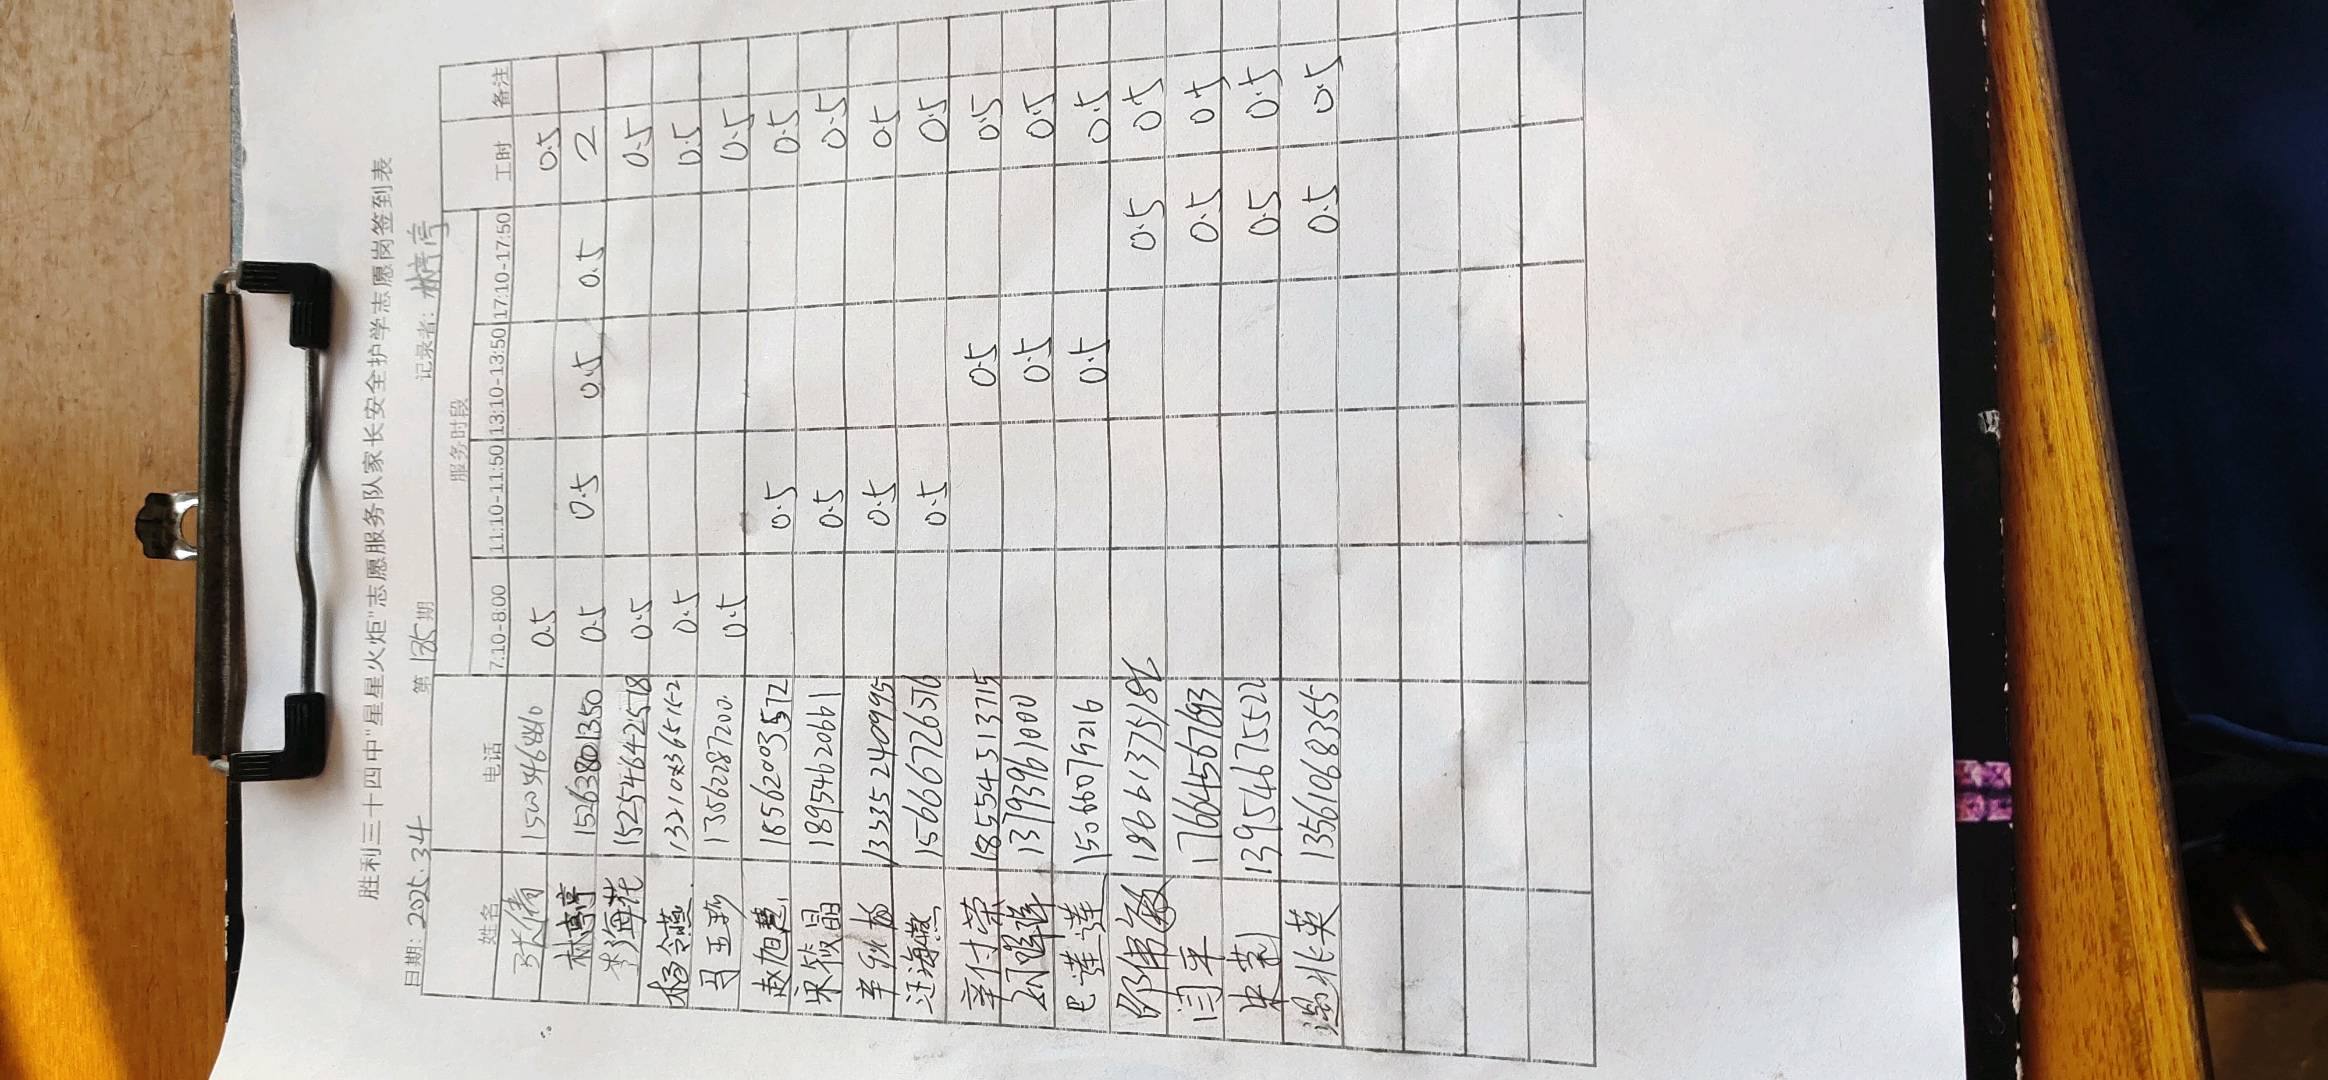 胜利三十四中"星星火炬"志愿服务队家长安全护学志愿岗签到表
日期: 2025.3.4 第135期 记录者: 林亭亭
姓名 电话 服务时段 工时 备注
7:10-8:00 11:10-11:50 13:10-13:50 17:10-17:50
张倩 0.5 0.5
林亭亭 15263801350 0.5 0.5 0.5 0.5 2
李海花 15254642578 0.5 0.5
杨令燕 0.5 0.5
马玉珍 13562287200 0.5 0.5
赵旭慧 18562003572 0.5 0.5
宋筱晶 18954620661 0.5 0.5
辛秋板 13335240995 0.5 0.5
汪海燕 15666726576 0.5 0.5
辛付荣 18554513715 0.5 0.5
孙鹏峰 13793961000 0.5 0.5
巴莲莲 15066079216 0.5 0.5
邵伟敏 18661375186 0.5 0.5
闫平 17664567693 0.5 0.5
朱莉 13954675522 0.5 0.5
长英 13561068355 0.5 0.5